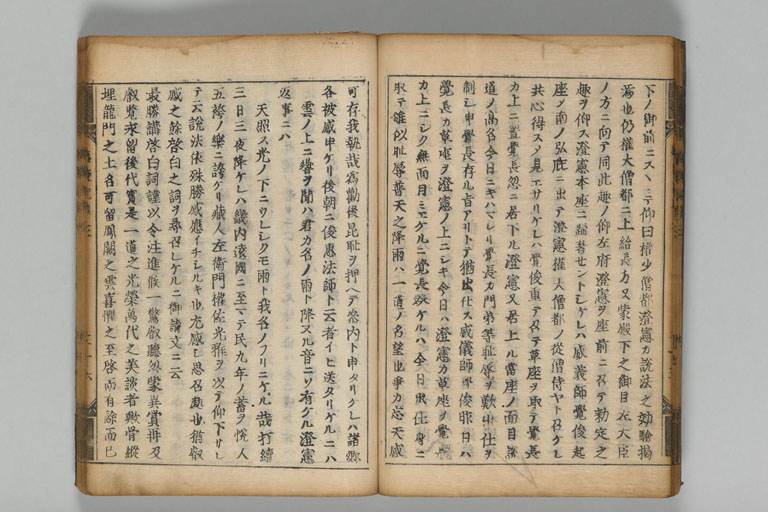 下ノ御前ニスヽミテ仰曰権少僧都澄憲カ説法之効験掲
焉也仍権大僧都ニ上給長カ又蒙殿下之御目左大臣
ノ方ニ向テ同此趣ノ仰左府澄憲ヲ座前ニ召テ勅定之
趣ヲ仰ス澄憲本座ニ帰著セントシケレハ威義師覺俊起
座ノ南ノ弘庇ニ出テ澄憲権大僧都ノ従僧侍ヤト召ケレ
共心得スソ見エサリケレハ覺俊重テ召テ草座ヲ取テ覺長
カ上ニ置覺長忽ニ若下ル澄憲又若上ル當座ノ面目説
道ノ高名今日ニキハマレリ覺長カ門弟等耻辱ヲ歎申仕ヲ
制シ申覺長存ル旨アリトテ猶出仕ス威儀師覺俊昨日ハ
覺長カ草座ヲ澄憲ノ上ニシキ今日ハ澄憲カ草座ヲ覺長
カ上ニシク無面目ミエケルニ覺長殊ケルハ今日出仕身ニ
取テ雖似耻辱普天之降雨ハ一道ノ名望也争カ忘天感
可存我執哉為勸後昆耻ヲ押ヘテ参内ト申タリケレハ諸卿
各被感申ケリ後朝ニ俊惠法師ト云者イヒ送タリケルニハ
雲ノ上ニ響ヲ聞ハ君カ名ノ雨ト降ヌル音ニソ有ケル澄憲
返事ニハ
天照ス光ノ下ニウレシクモ雨ト我名ノフリニケル哉打續
三日三夜降ケレハ畿内遠國ニ至マテ民九年ノ蓄ヲ悦人
五袴ノ樂ニ誇ケリ蔵人左衛門権佐光雅ヲ以テ仰下サレ
テ云説法依殊勝感應イチシルキ也尤感シ思召所也猶叡
感之餘啓白之詞ヲ尋召レケルニ御請文ニ云
最勝講啓白詞謹以令注進候一驚叡聽忽蒙異賞再及
叡覽永留後代實是一道之光榮萬代之美談者歟骨縱
埋龍門之土名可留鳳闕之雲喜懼之至啓而有餘而已